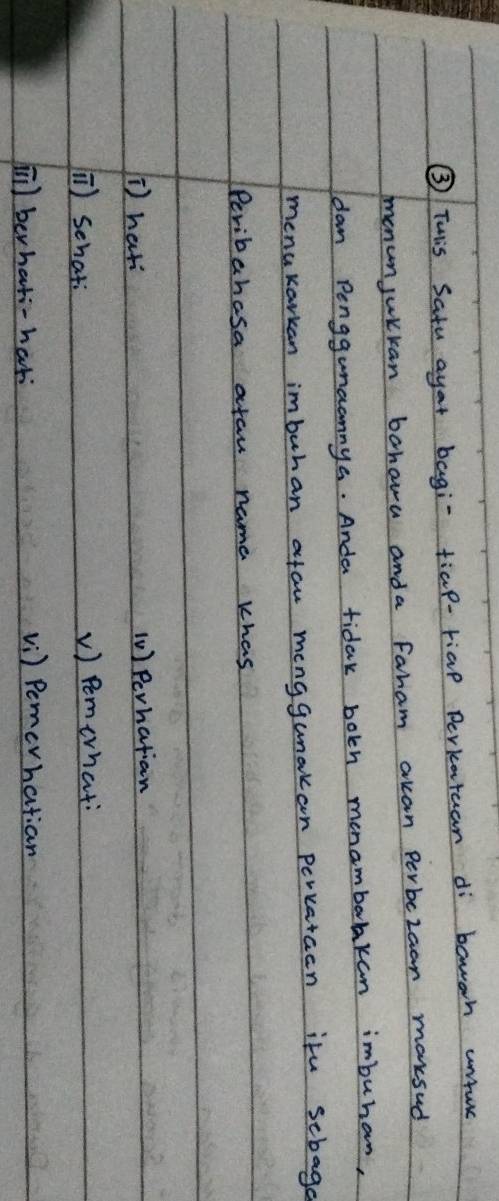 ③ Tulis satu ayat bagi- tiap-tiap Perkataan di bawah untuk
menunjukkan baharu anda faham akan Perbezaan maksud
dan Penggunaannya. Anda tidak boleh menambahkan imbuhan,
menukarkan imbuhan atau menggunakan perkataan itu sebaga
Peribahasa atau nama khas
i) hati iv) Perhatian
ii) sehati v) Pemerhati
iii) berhati-hati vi) Pemerhatian